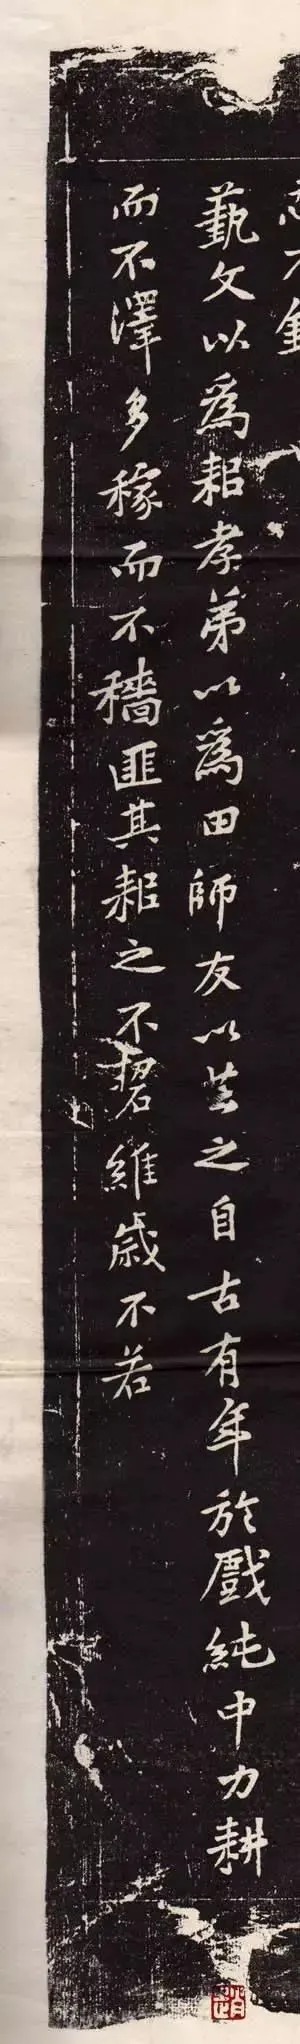 蓺文以爲耜孝弟以爲田師友以芸之自古有年於戲純中力耕
而不澤多稼而不穡匪其耜之不䂮維歲不若